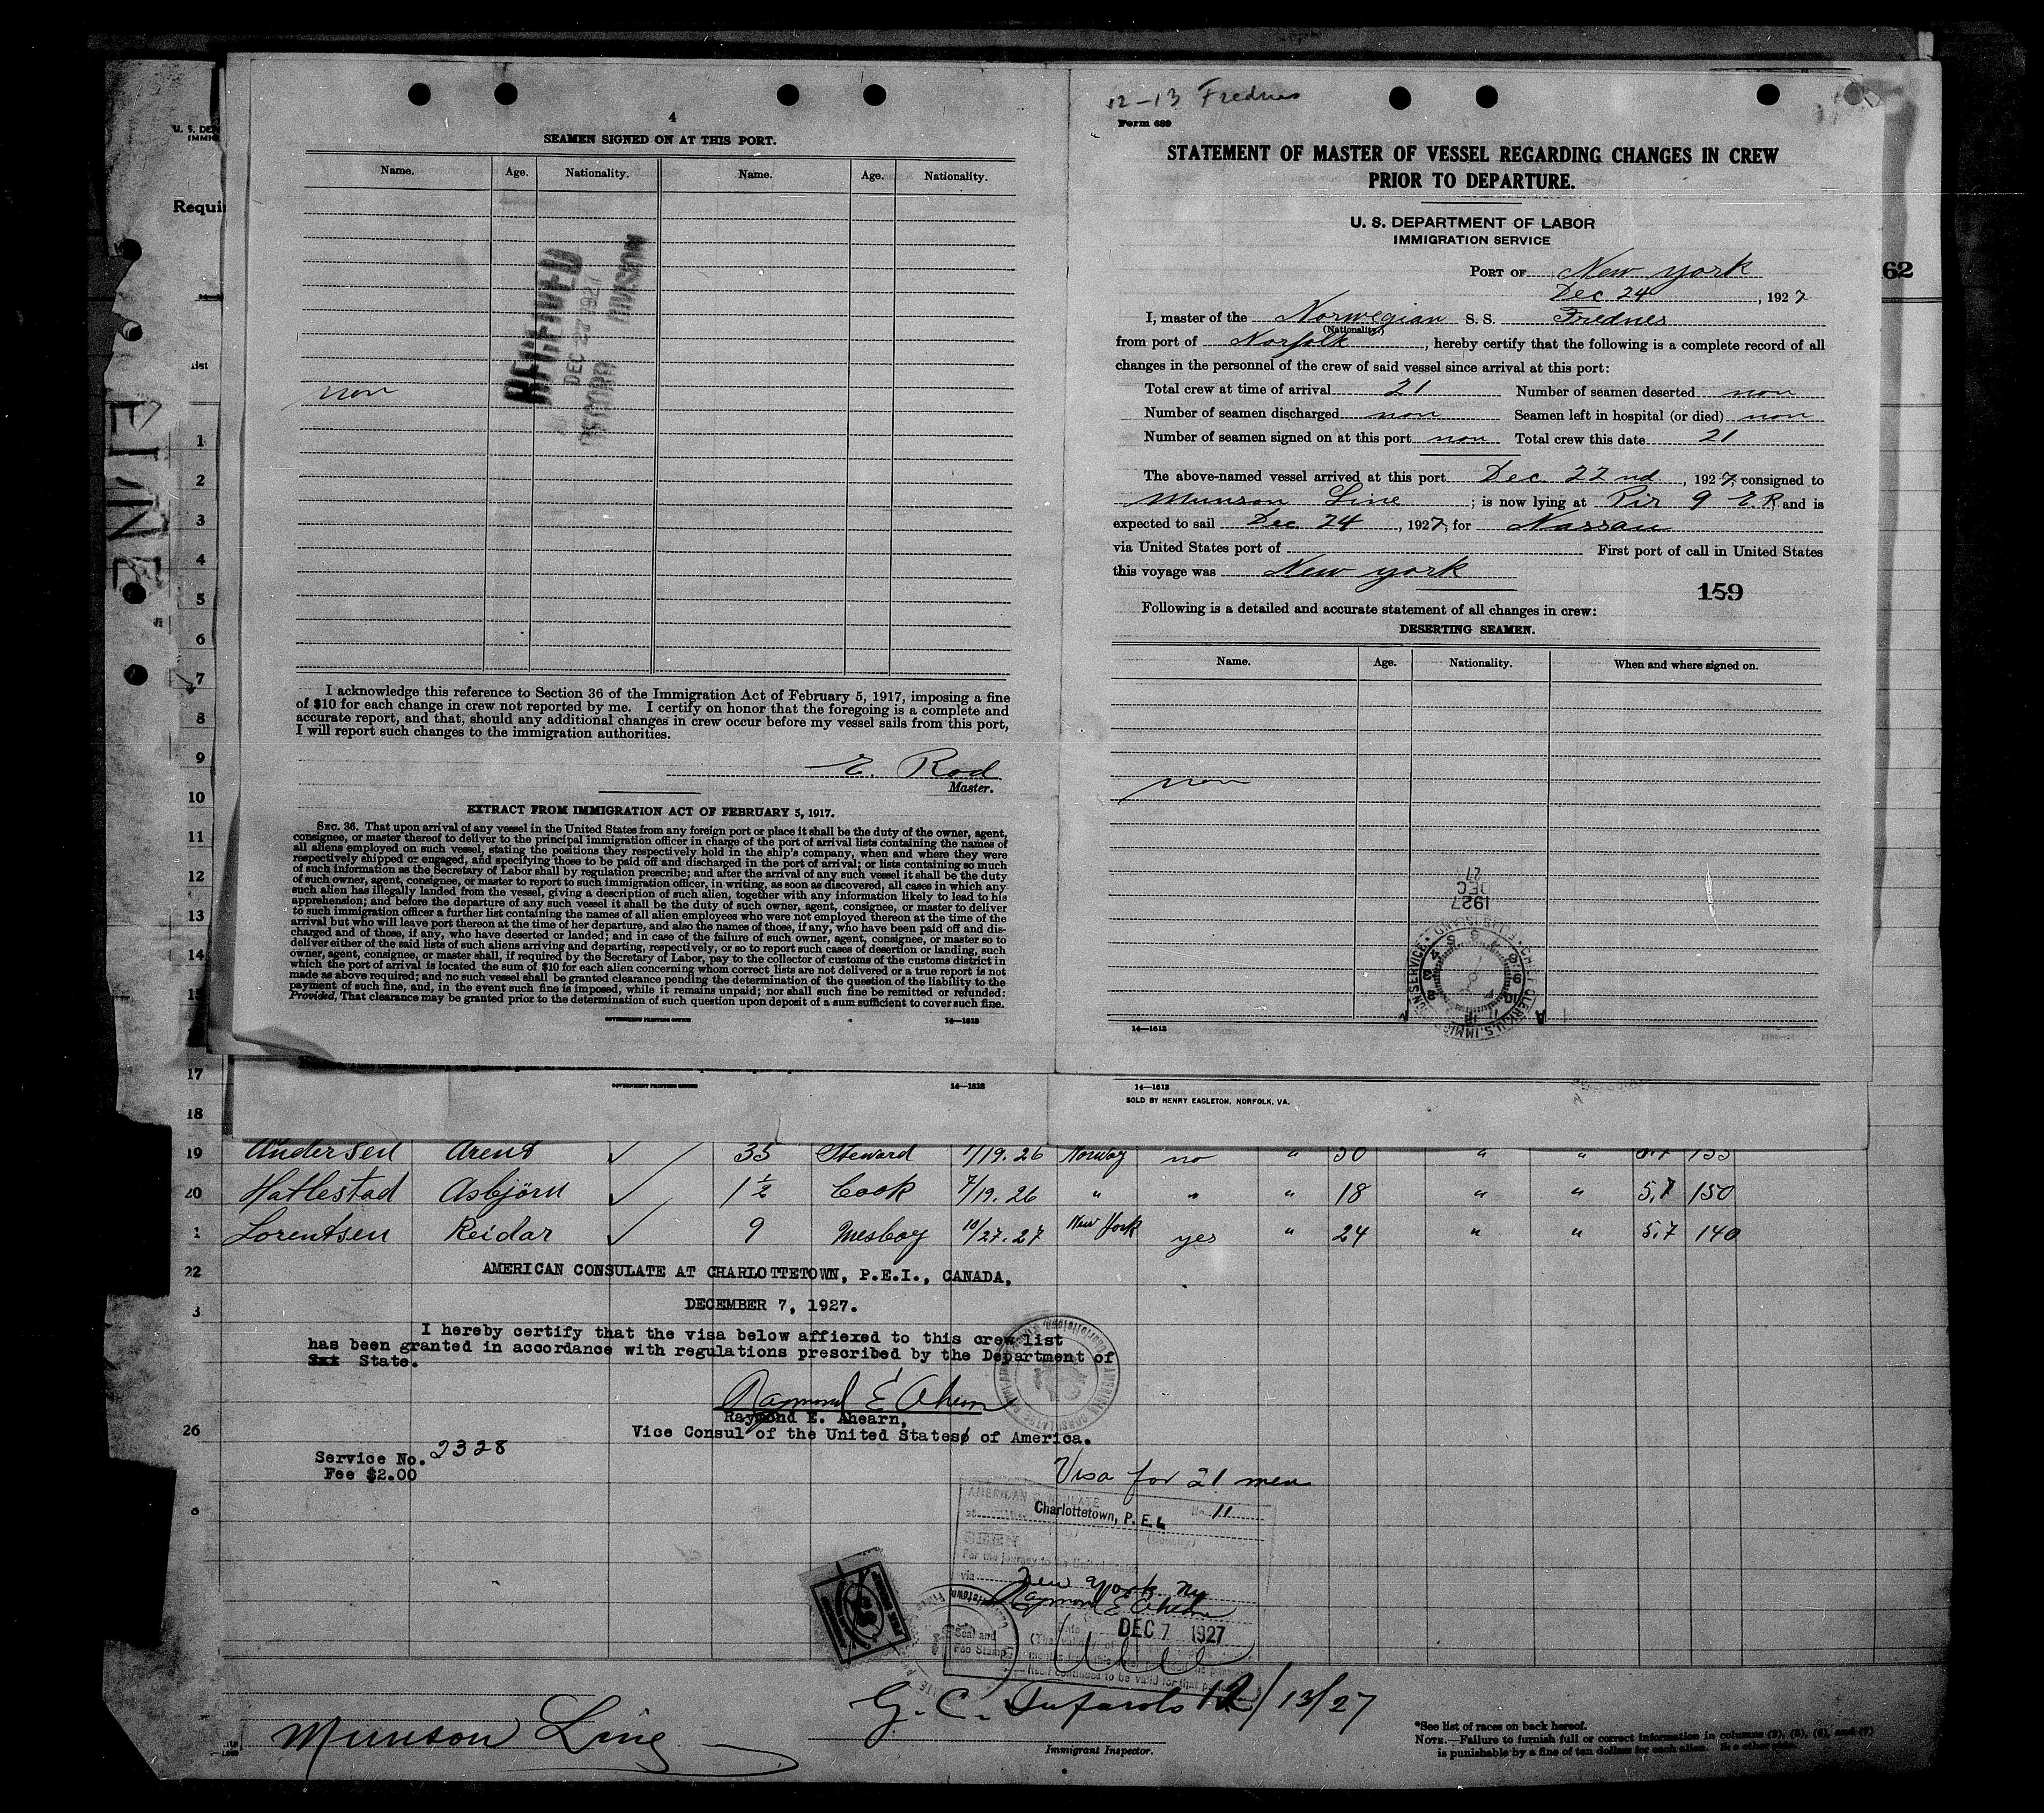 4
SEAMEN SIGNED ON AT THIS PORT.
Name. Age. Nationality. Name. Age. Nationality.
RECEIVED
DEC 27 1927
RECORD DIVISION
non
I acknowledge this reference to Section 36 of the Immigration Act of February 5, 1917, imposing a fine
of $10 for each change in crew not reported by me. I certify on honor that the foregoing is a complete and
accurate report, and that, should any additional changes in crew occur before my vessel sails from this port,
I will report such changes to the immigration authorities.
E. Rod
Master.
EXTRACT FROM IMMIGRATION ACT OF FEBRUARY 5, 1917.
SEC. 36. That upon arrival of any vessel in the United States from any foreign port or place it shall be the duty of the owner, agent,
consignee, or master thereof to deliver to the principal immigration officer in charge of the port of arrival lists containing the names of
all aliens employed on such vessel, stating the positions they respectively hold in the ship's company, when and where they were
respectively shipped or engaged, and specifying those to be paid off and discharged in the port of arrival; or lists containing so much
of such information as the Secretary of Labor shall by regulation prescribe; and after the arrival of any such vessel it shall be the duty
of such owner, agent, consignee, or master to report to such immigration officer, in writing, as soon as discovered, all cases in which any
such alien has illegally landed from the vessel, giving a description of such alien, together with any information likely to lead to his
apprehension; and before the departure of any such vessel it shall be the duty of such owner, agent, consignee, or master to deliver
to such immigration officer a further list containing the names of all alien employees who were not employed thereon at the time of the
arrival but who will leave port thereon at the time of her departure, and also the names of those, if any, who have been paid off and dis-
charged and of those, if any, who have deserted or landed; and in case of the failure of such owner, agent, consignee, or master so to
deliver either of the said lists of such aliens arriving and departing, respectively, or so to report such cases of desertion or landing, such
owner, agent, consignee, or master shall, if required by the Secretary of Labor, pay to the collector of customs of the customs district in
which the port of arrival is located the sum of $10 for each alien concerning whom correct lists are not delivered or a true report is not
made as above required; and no such vessel shall be granted clearance pending the determination of the question of the liability to the
payment of such fine, and, in the event such fine is imposed, while it remains unpaid; nor shall such fine be remitted or refunded:
Provided, That clearance may be granted prior to the determination of such question upon deposit of a sum sufficient to cover such fine.
GOVERNMENT PRINTING OFFICE 14—1613
12-13 Frednes
Form 689
STATEMENT OF MASTER OF VESSEL REGARDING CHANGES IN CREW
PRIOR TO DEPARTURE.
U. S. DEPARTMENT OF LABOR
IMMIGRATION SERVICE
PORT OF New York
Dec 24, 1927
I, master of the Norwegian S. S. Frednes
(Nationality.)
from port of Norfolk, hereby certify that the following is a complete record of all
changes in the personnel of the crew of said vessel since arrival at this port:
Total crew at time of arrival 21 Number of seamen deserted non
Number of seamen discharged non Seamen left in hospital (or died) non
Number of seamen signed on at this port non Total crew this date 21
The above-named vessel arrived at this port Dec 22nd, 1927, consigned to
Munson Line; is now lying at Pir 9 E.R. and is
expected to sail Dec 24, 1927, for Nassau
via United States port of First port of call in United States
this voyage was New York
159
Following is a detailed and accurate statement of all changes in crew:
DESERTING SEAMEN.
Name. Age. Nationality. When and where signed on.
non
1927
DEC
27
14—1613
62
U. S. DE
IMMI
Requi
list
1
2
3
4
5
6
7
8
9
10
11
12
13
14
15
17
18
GOVERNMENT PRINTING OFFICE 14—1613
14—1613
SOLD BY HENRY EAGLETON, NORFOLK, VA.
19 Andersen Arent ✓ 35 Steward 7/19.26 Norway no " 50 " " 5.7 155
20 Hatlestad Asbjörn ✓ 1½ Cook 7/19.26 " " " 18 " " 5.7 150
1 Lorentsen Reidar ✓ 9 Mesboy 10/27.27 New York yes " 24 " " 5.7 140
22 AMERICAN CONSULATE AT CHARLOTTETOWN, P.E.I., CANADA,
3 DECEMBER 7, 1927.
I hereby certify that the visa below affiexed to this crew list
has been granted in accordance with regulations prescribed by the Department of
State.
Raymond E Ahearn
Raymond E. Ahearn,
26 Vice Consul of the United States of America.
Service No. 2328
Fee $2.00
Visa for 21 men
AMERICAN CONSULATE
at Charlottetown, P.E.I. No. 11
(Country)
SEEN
For the journey to the United States
via New York Ny
Raymond E Ahearn
Date DEC 7 1927
Seal and
Fee Stamp
Munson Line
G. C. 12/13/27
Immigrant Inspector.
*See list of races on back hereof.
NOTE.—Failure to furnish full or correct information in columns (2), (5), (6), and (7)
is punishable by a fine of ten dollars for each alien. See other side.